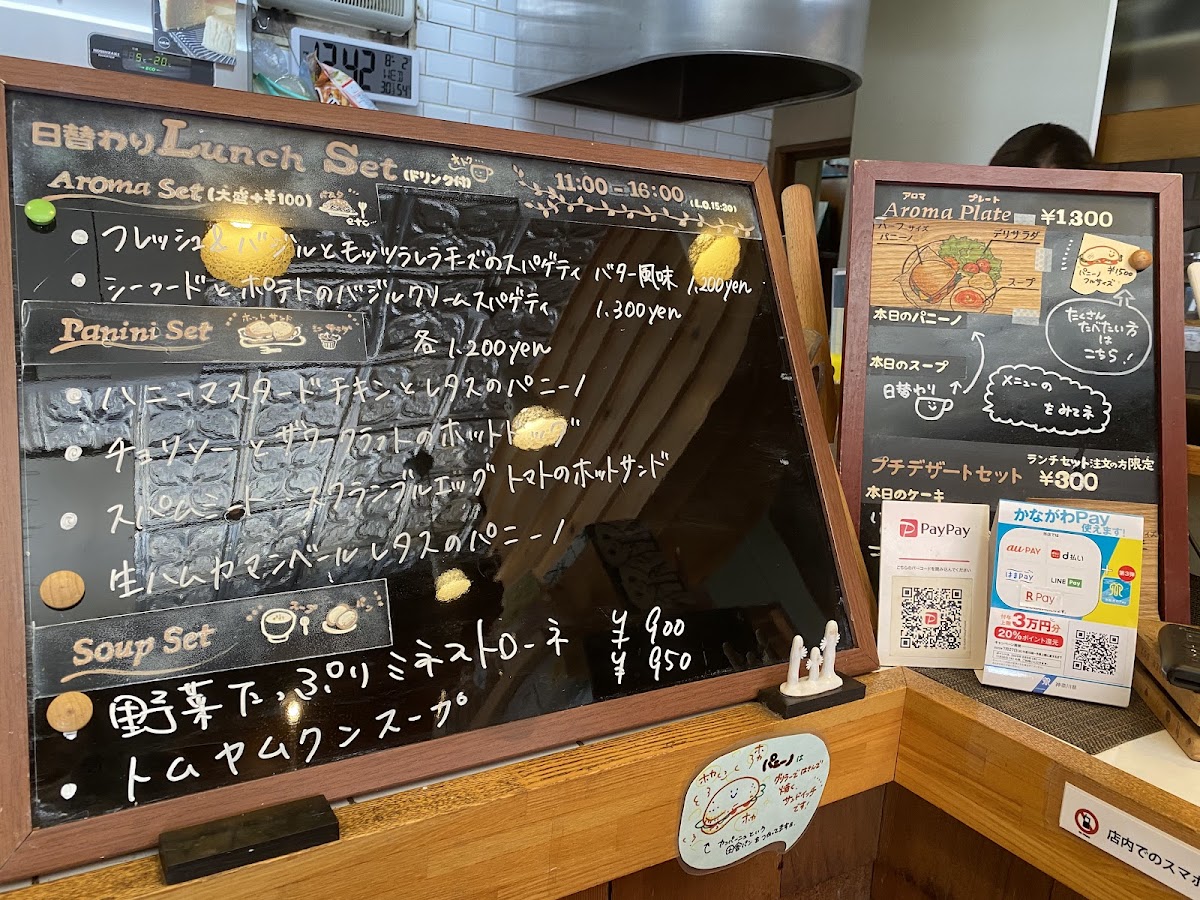 日替わり Lunch Set (ドリンク付) オトク
11:00 - 16:00 (L.O.15:30)
Aroma Set (大盛+¥100) etc...
フレッシュ バジルとモッツァレラチーズのスパゲティ バター風味 1.200yen
シーフードとポテトのバジルクリームスパゲティ 1.300yen
Panini Set ホットサンド
各 1.200yen
ハニーマスタードチキンとレタスのパニーノ
チョリソーとザワークラウトのホットドッグ
スパム スクランブルエッグ トマトのホットサンド
生ハム カマンベール レタスのパニーノ
Soup Set
野菜たっぷりミネストローネ ¥900
トムヤムクンスープ ¥950
アロマ プレート
Aroma Plate ¥1.300
ハーフサイズ
パニーノ
デリサラダ
スープ
パニーノ ¥1500
フルサイズ
たくさん
たべたい方
は
こちら!
本日のパニーノ
本日のスープ
日替わり
メニューの
をみてネ
プチデザートセット
ランチセット注文の方限定
¥300
本日のケーキ
PayPay
PayPay
かながわPay
使えます!
au PAY
d払い
はまPay
LINE Pay
R Pay
第3弾
3万円分
20%ポイント還元
神奈川県
ホカ
パニーノは
グリラーではさんで
焼く、
サンドイッチ
です!
カンパーニュという
田舎パンをつかってます。
店内でのスマホ
12:42
8-2
WED